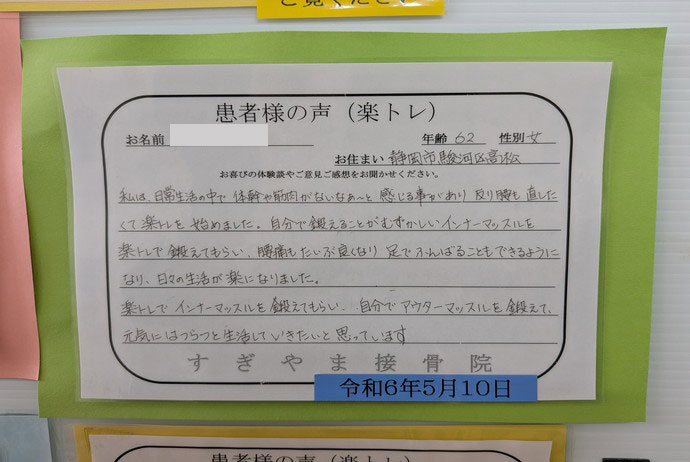 ご覧ください
患者様の声（楽トレ）
お名前 年齢 62 性別 女
お住まい 静岡市駿河区高松
お喜びの体験談やご意見ご感想をお聞かせください。
私は、日常生活の中で体幹や筋肉がないなぁ～と感じる事があり反り腰も直した
くて楽トレを始めました。自分で鍛えることがむずかしいインナーマッスルを
楽トレで鍛えてもらい、腰痛もだいぶ良くなり足でふんばることもできるように
なり、日々の生活が楽になりました。
楽トレでインナーマッスルを鍛えてもらい、自分でアウターマッスルを鍛えて、
元気にはつらつと生活していきたいと思っています
すぎやま接骨院
令和6年5月10日
患者様の声（楽トレ）